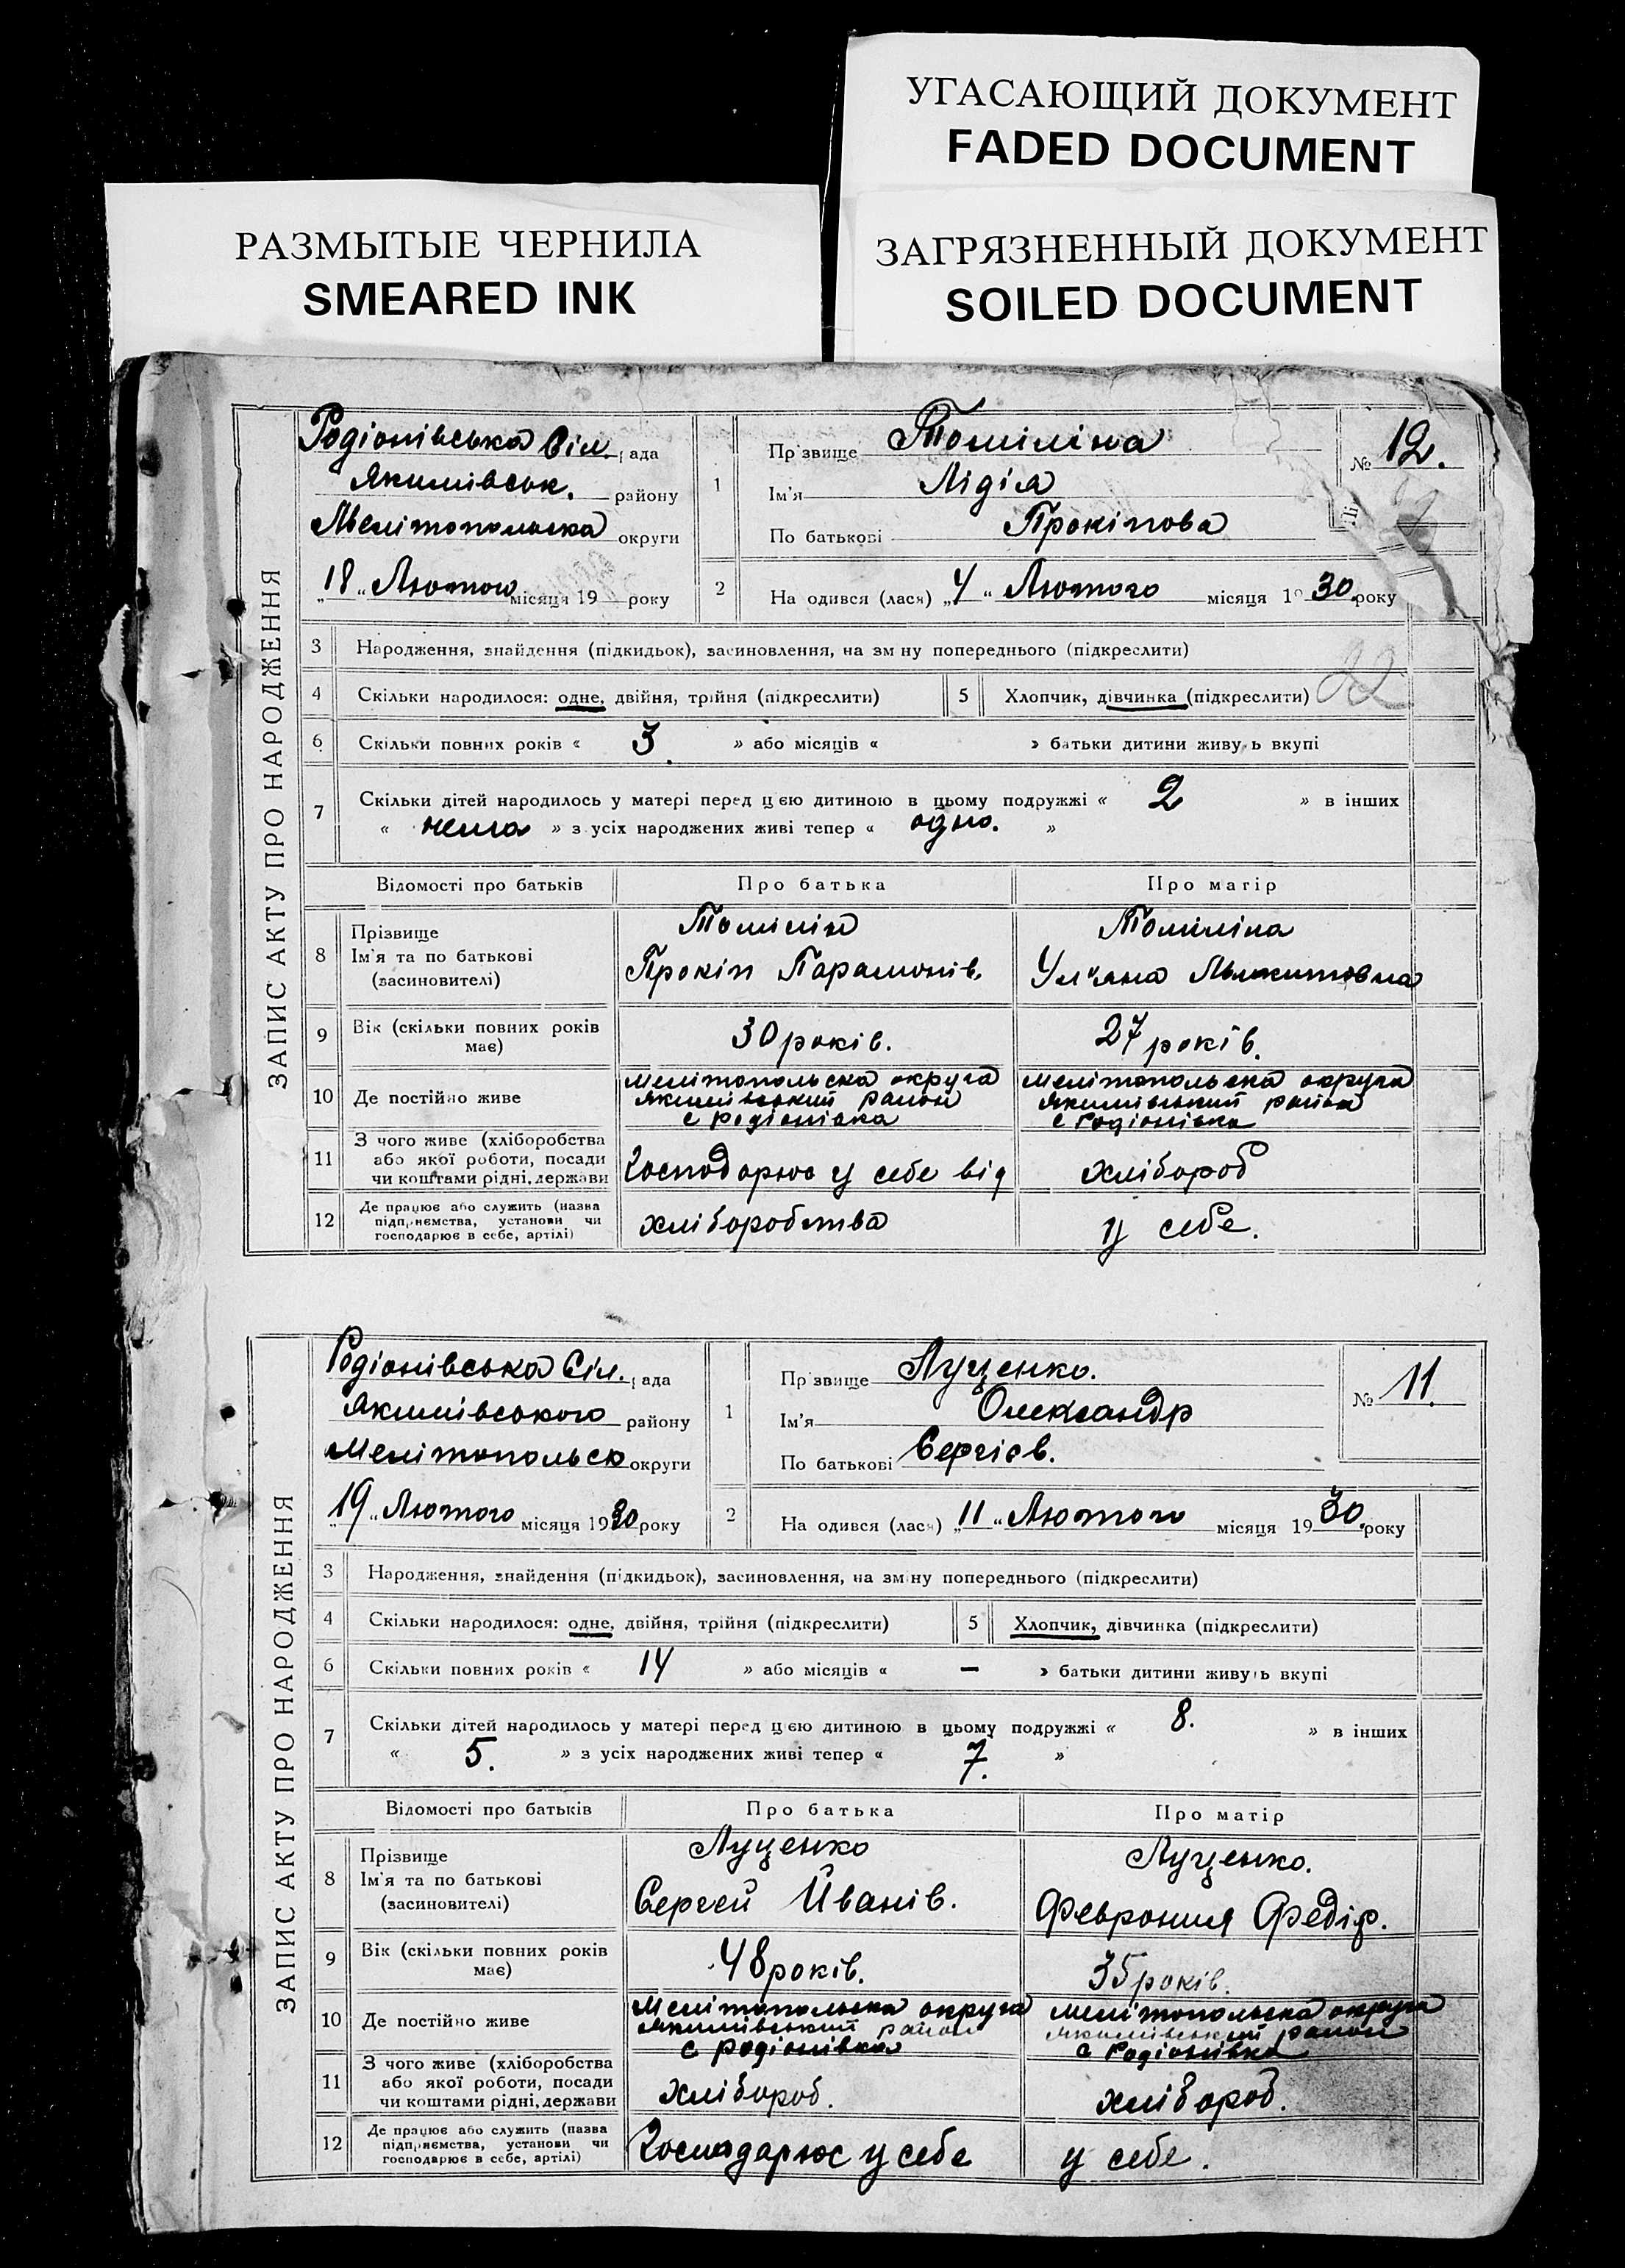 УГАСАЮЩИЙ ДОКУМЕНТ
FADED DOCUMENT
РАЗМЫТЫЕ ЧЕРНИЛА
SMEARED INK
ЗАГРЯЗНЕННЫЙ ДОКУМЕНТ
SOILED DOCUMENT
ЗАПИС АКТУ ПРО НАРОДЖЕННЯ
Родіонівська Сіл. рада
Якимівськ. району
Мелітопольська округи
„18“ Лютого місяця 19 року
1
Прізвище Томіліна
Ім'я Лідія
По батькові Прокіпова
№ 12.
2
На одився (лася) „4“ Лютого місяця 1930 року
3 Народження, знайдення (підкидьок), засиновлення, на зміну попереднього (підкреслити)
22
4 Скільки народилося: одне, двійня, трійня (підкреслити) 5 Хлопчик, дівчинка (підкреслити)
6 Скільки повних років « 3. » або місяців « » батьки дитини живуть вкупі
7 Скільки дітей народилось у матері перед цією дитиною в цьому подружжі « 2 » в інших
« нема » з усіх народжених живі тепер « одно. »
Відомості про батьків Про батька Про матір
8 Прізвище Ім'я та по батькові (засиновителі)
Томілін
Прокіп Парамонів.
Томиліна
Ул'яна
9 Вік (скільки повних років має) 30 років. 27 років.
10 Де постійно живе
мелітопольска округа
якимівський район
с родіонівка
мелітопольска округа
якимівський район
с родіонівка
11 З чого живе (хліборобства або якої роботи, посади чи коштами рідні, держави
Господарює у себе від
хлібороб
12 Де працює або служить (назва підприємства, установи чи господарює в себе, артілі)
хліборобства
у себе.
ЗАПИС АКТУ ПРО НАРОДЖЕННЯ
Родіонівська Сіл. рада
Якимівського району
Мелітопольск округи
„19“ Лютого місяця 1930 року
1
Прізвище Луценко.
Ім'я Олександр
По батькові Сергієв.
№ 11.
2
На одився (лася) „11“ Лютого місяця 1930 року
3 Народження, знайдення (підкидьок), засиновлення, на зміну попереднього (підкреслити)
4 Скільки народилося: одне, двійня, трійня (підкреслити) 5 Хлопчик, дівчинка (підкреслити)
6 Скільки повних років « 14 » або місяців « – » батьки дитини живуть вкупі
7 Скільки дітей народилось у матері перед цією дитиною в цьому подружжі « 8. » в інших
« 5. » з усіх народжених живі тепер « 7. »
Відомості про батьків Про батька Про матір
8 Прізвище Ім'я та по батькові (засиновителі)
Луценко
Сергей Иванів.
Луценко.
Феврония Федір.
9 Вік (скільки повних років має) 48 років. 35 років.
10 Де постійно живе
Мелітопольска округа
якимівський район
с родіонівка
мелітопольска округа
якимівський район
с родіонівка
11 З чого живе (хліборобства або якої роботи, посади чи коштами рідні, держави
хлібороб.
хлібороб.
12 Де працює або служить (назва підприємства, установи чи господарює в себе, артілі)
Господарює у себе
у себе.